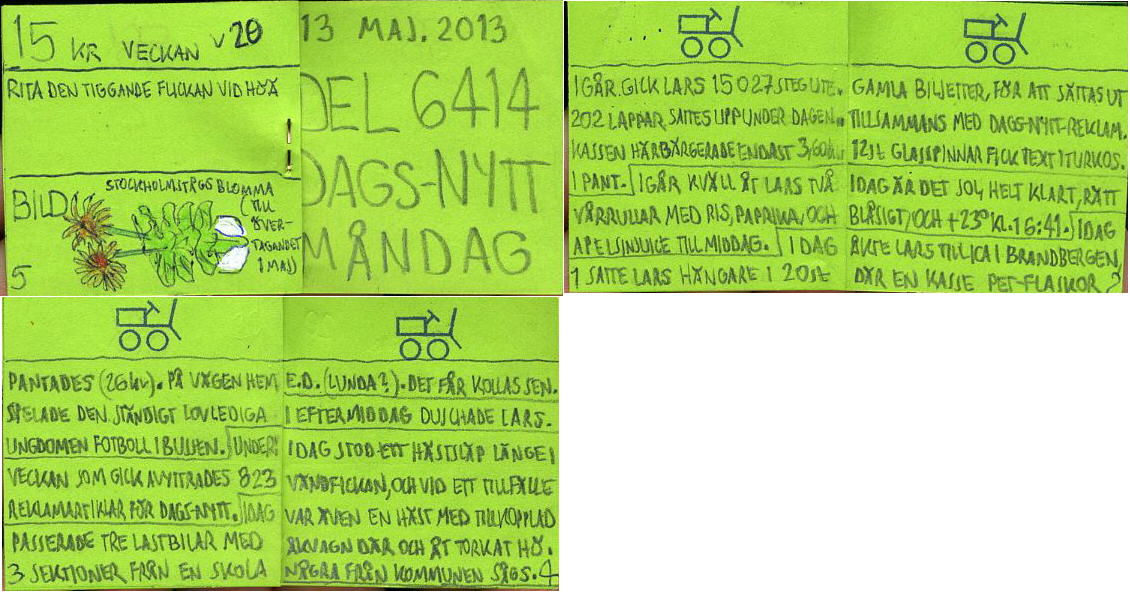 15 KR VECKAN V 20
RITA DEN TIGGANDE FLICKAN VID HÖÄ
BILD
STOCKHOLMSTRGS BLOMMA
(TILL
ÖVER-
TAGANDET
I MAJ)
5
13 MAJ. 2013
DEL 6414
DAGS-NYTT
MÅNDAG
IGÅR GICK LARS 15027 STEG UTE.
202 LAPPAR SATTES UPP UNDER DAGEN.
KASSEN HÄRBÄRGERADE ENDAST 3,60 kr
I PANT. IGÅR KVÄLL ÅT LARS TVÅ
VÅRRULLAR MED RIS, PAPRIKA, OCH
APELSINJUICE TILL MIDDAG. IDAG
1 SATTE LARS HÄNGARE I 20 st
GAMLA BILJETTER, FÖR ATT SÄTTAS UT
TILLSAMMANS MED DAGS-NYTT-REKLAM.
12 st GLASSPINNAR FICK TEXT I TURKOS.
IDAG ÄR DET SOL, HELT KLART, RÄTT
BLÅSIGT, OCH +23° KL. 16:41. IDAG
ÅKTE LARS TILL ICA I BRANDBERGEN,
DÄR EN KASSE PET-FLASKOR 2
PANTADES (26 kr). PÅ VÄGEN HEM
SPELADE DEN STÄNDIGT LOVLEDIGA
UNGDOMEN FOTBOLL I BUREN. UNDER
VECKAN SOM GICK AVYTTRADES 823
REKLAMARTIKLAR FÖR DAGS-NYTT. IDAG
PASSERADE TRE LASTBILAR MED
3 SEKTIONER FRÅN EN SKOLA
E.D. (LUNDA?). DET FÅR KOLLAS SEN.
I EFTERMIDDAG DUSCHADE LARS.
IDAG STOD ETT HÄSTSLÄP LÄNGE I
VÄNDFICKAN, OCH VID ETT TILLFÄLLE
VAR ÄVEN EN HÄST MED TILLKOPPLAD
ÅKVAGN DÄR OCH ÅT TORKAT HÖ.
NÅGRA FRÅN KOMMUNEN SÅGS. 4